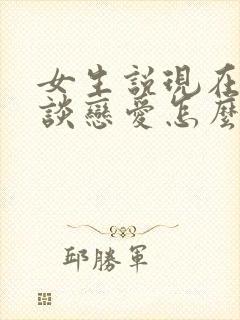 女生說現在
談戀愛怎麼
邱勝軍